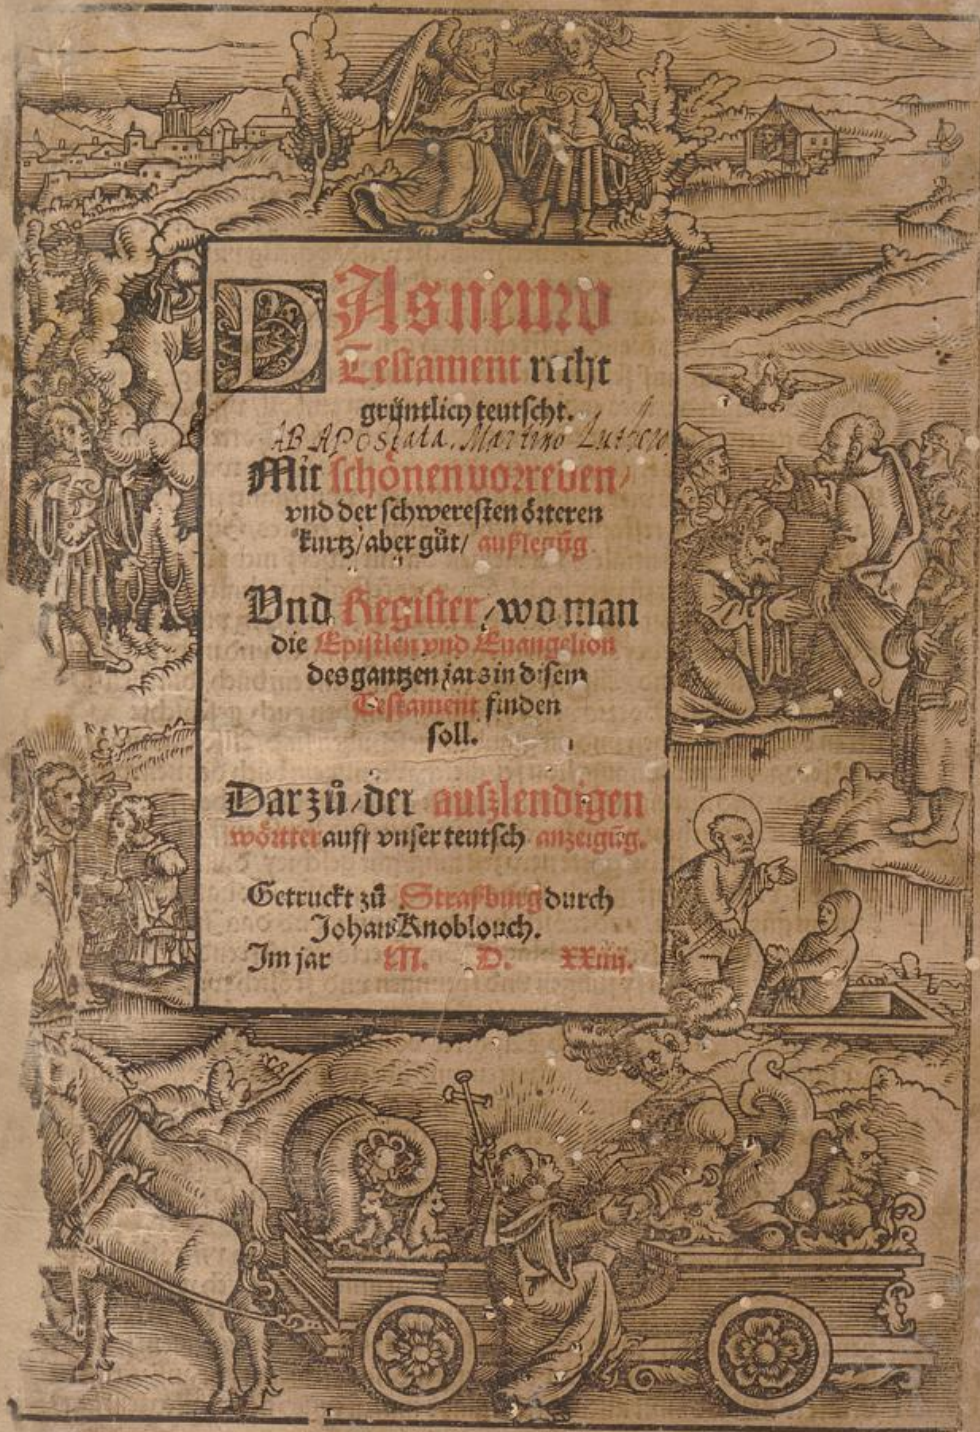 DAs neuw
Testament recht
grüntlich teutscht.
AB APOStata. Martino Luthero.
Mit schönen vorreden/
vnd der schweresten örteren
kurtz/ aber gůt/ außlegūg
Vnd Register/ wo man
die Epistlen vnd Euangelion
des gantzen jars in disem
Testament finden
soll.
Darzů/ der außlendigen
wörtter auff vnser teutsch anzeigūg.
Getruckt zů Straßburg durch
Johan Knoblouch.
Im jar M. D. XXiiij.